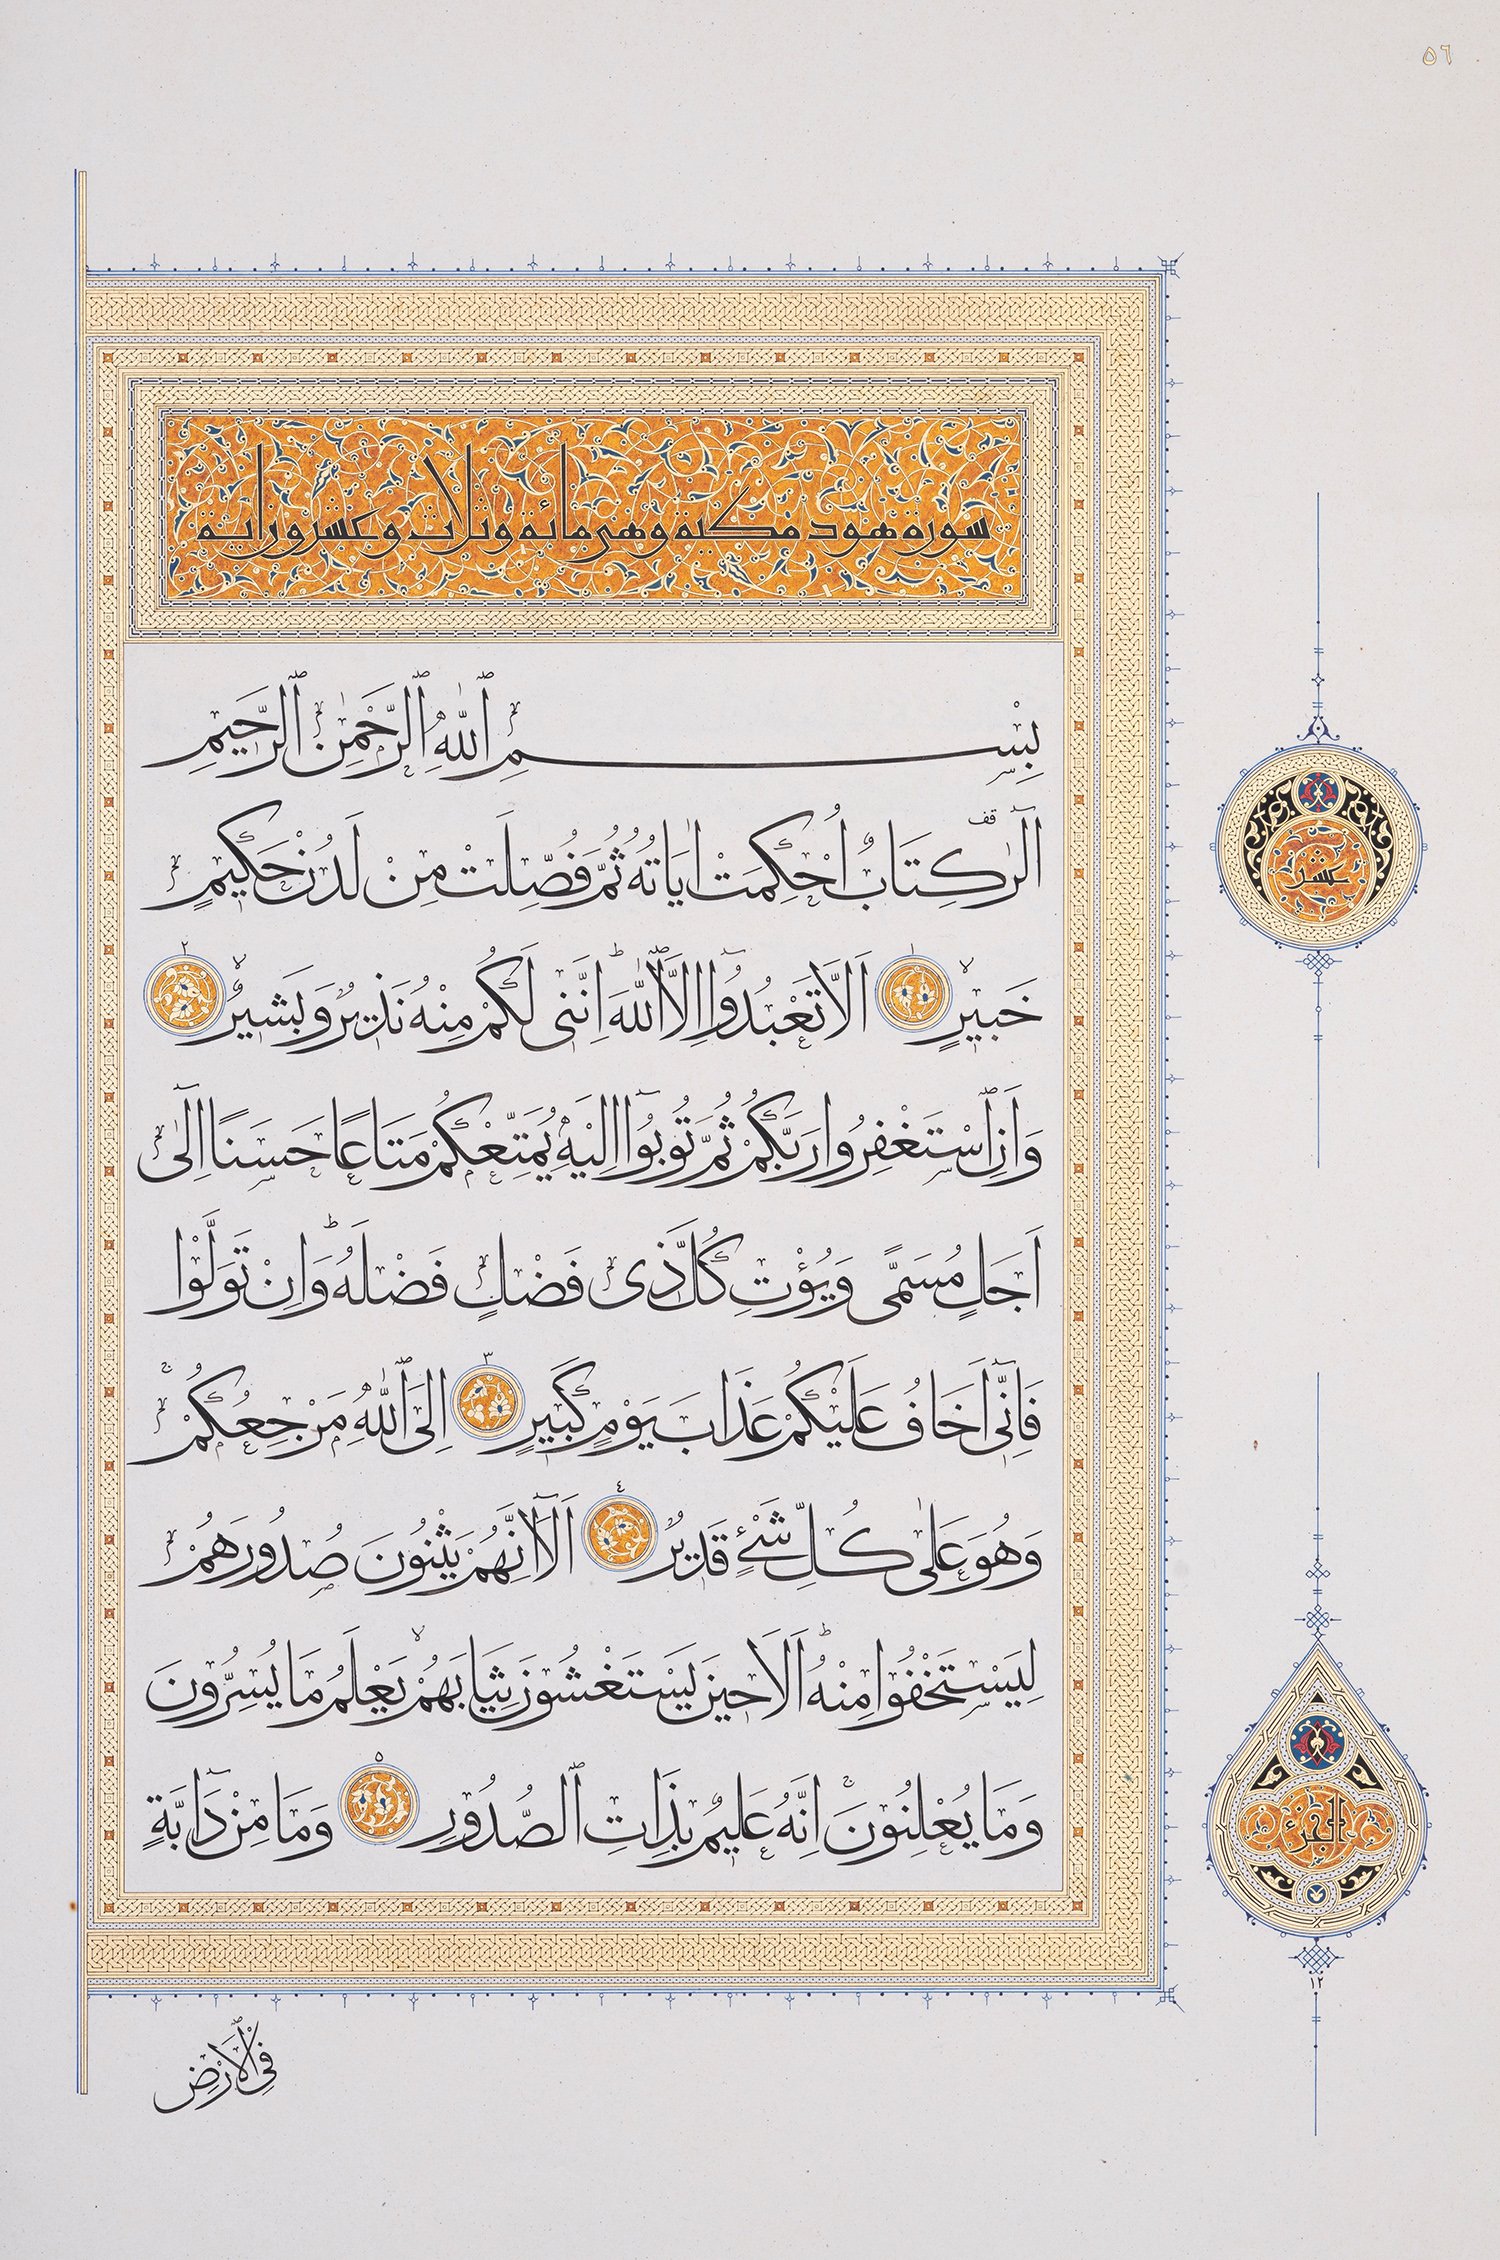 ٥٦
سورة هود مكية وهى مائة وثلاث وعشرون اية
بِسْمِ ٱللّٰهِ ٱلرَّحْمٰنِ ٱلرَّحِيمِ
الٓرٰ كِتَابٌ اُحْكِمَتْ اٰيَاتُهُ ثُمَّ فُصِّلَتْ مِنْ لَدُنْ حَكِيمٍ
خَبِيرٍ ١ اَلَّا تَعْبُدُوٓا اِلَّا ٱللّٰهَ اِنَّنِى لَكُمْ مِنْهُ نَذِيرٌ وَبَشِيرٌ ٢
وَاَنِ ٱسْتَغْفِرُوا رَبَّكُمْ ثُمَّ تُوبُوٓا اِلَيْهِ يُمَتِّعْكُمْ مَتَاعًا حَسَنًا اِلٰٓى
اَجَلٍ مُسَمًّى وَيُؤْتِ كُلَّ ذِى فَضْلٍ فَضْلَهُ وَاِنْ تَوَلَّوْا
فَاِنِّٓى اَخَافُ عَلَيْكُمْ عَذَابَ يَوْمٍ كَبِيرٍ ٣ اِلَى ٱللّٰهِ مَرْجِعُكُمْ
وَهُوَ عَلٰى كُلِّ شَىْءٍ قَدِيرٌ ٤ اَلَٓا اِنَّهُمْ يَثْنُونَ صُدُورَهُمْ
لِيَسْتَخْفُوا مِنْهُ اَلَا حِينَ يَسْتَغْشُونَ ثِيَابَهُمْ يَعْلَمُ مَا يُسِرُّونَ
وَمَا يُعْلِنُونَ اِنَّهُ عَلِيمٌ بِذَاتِ ٱلصُّدُورِ ٥ وَمَا مِنْ دَٓابَّةٍ
فِى ٱلْاَرْضِ
عشر
الجزء
١٢